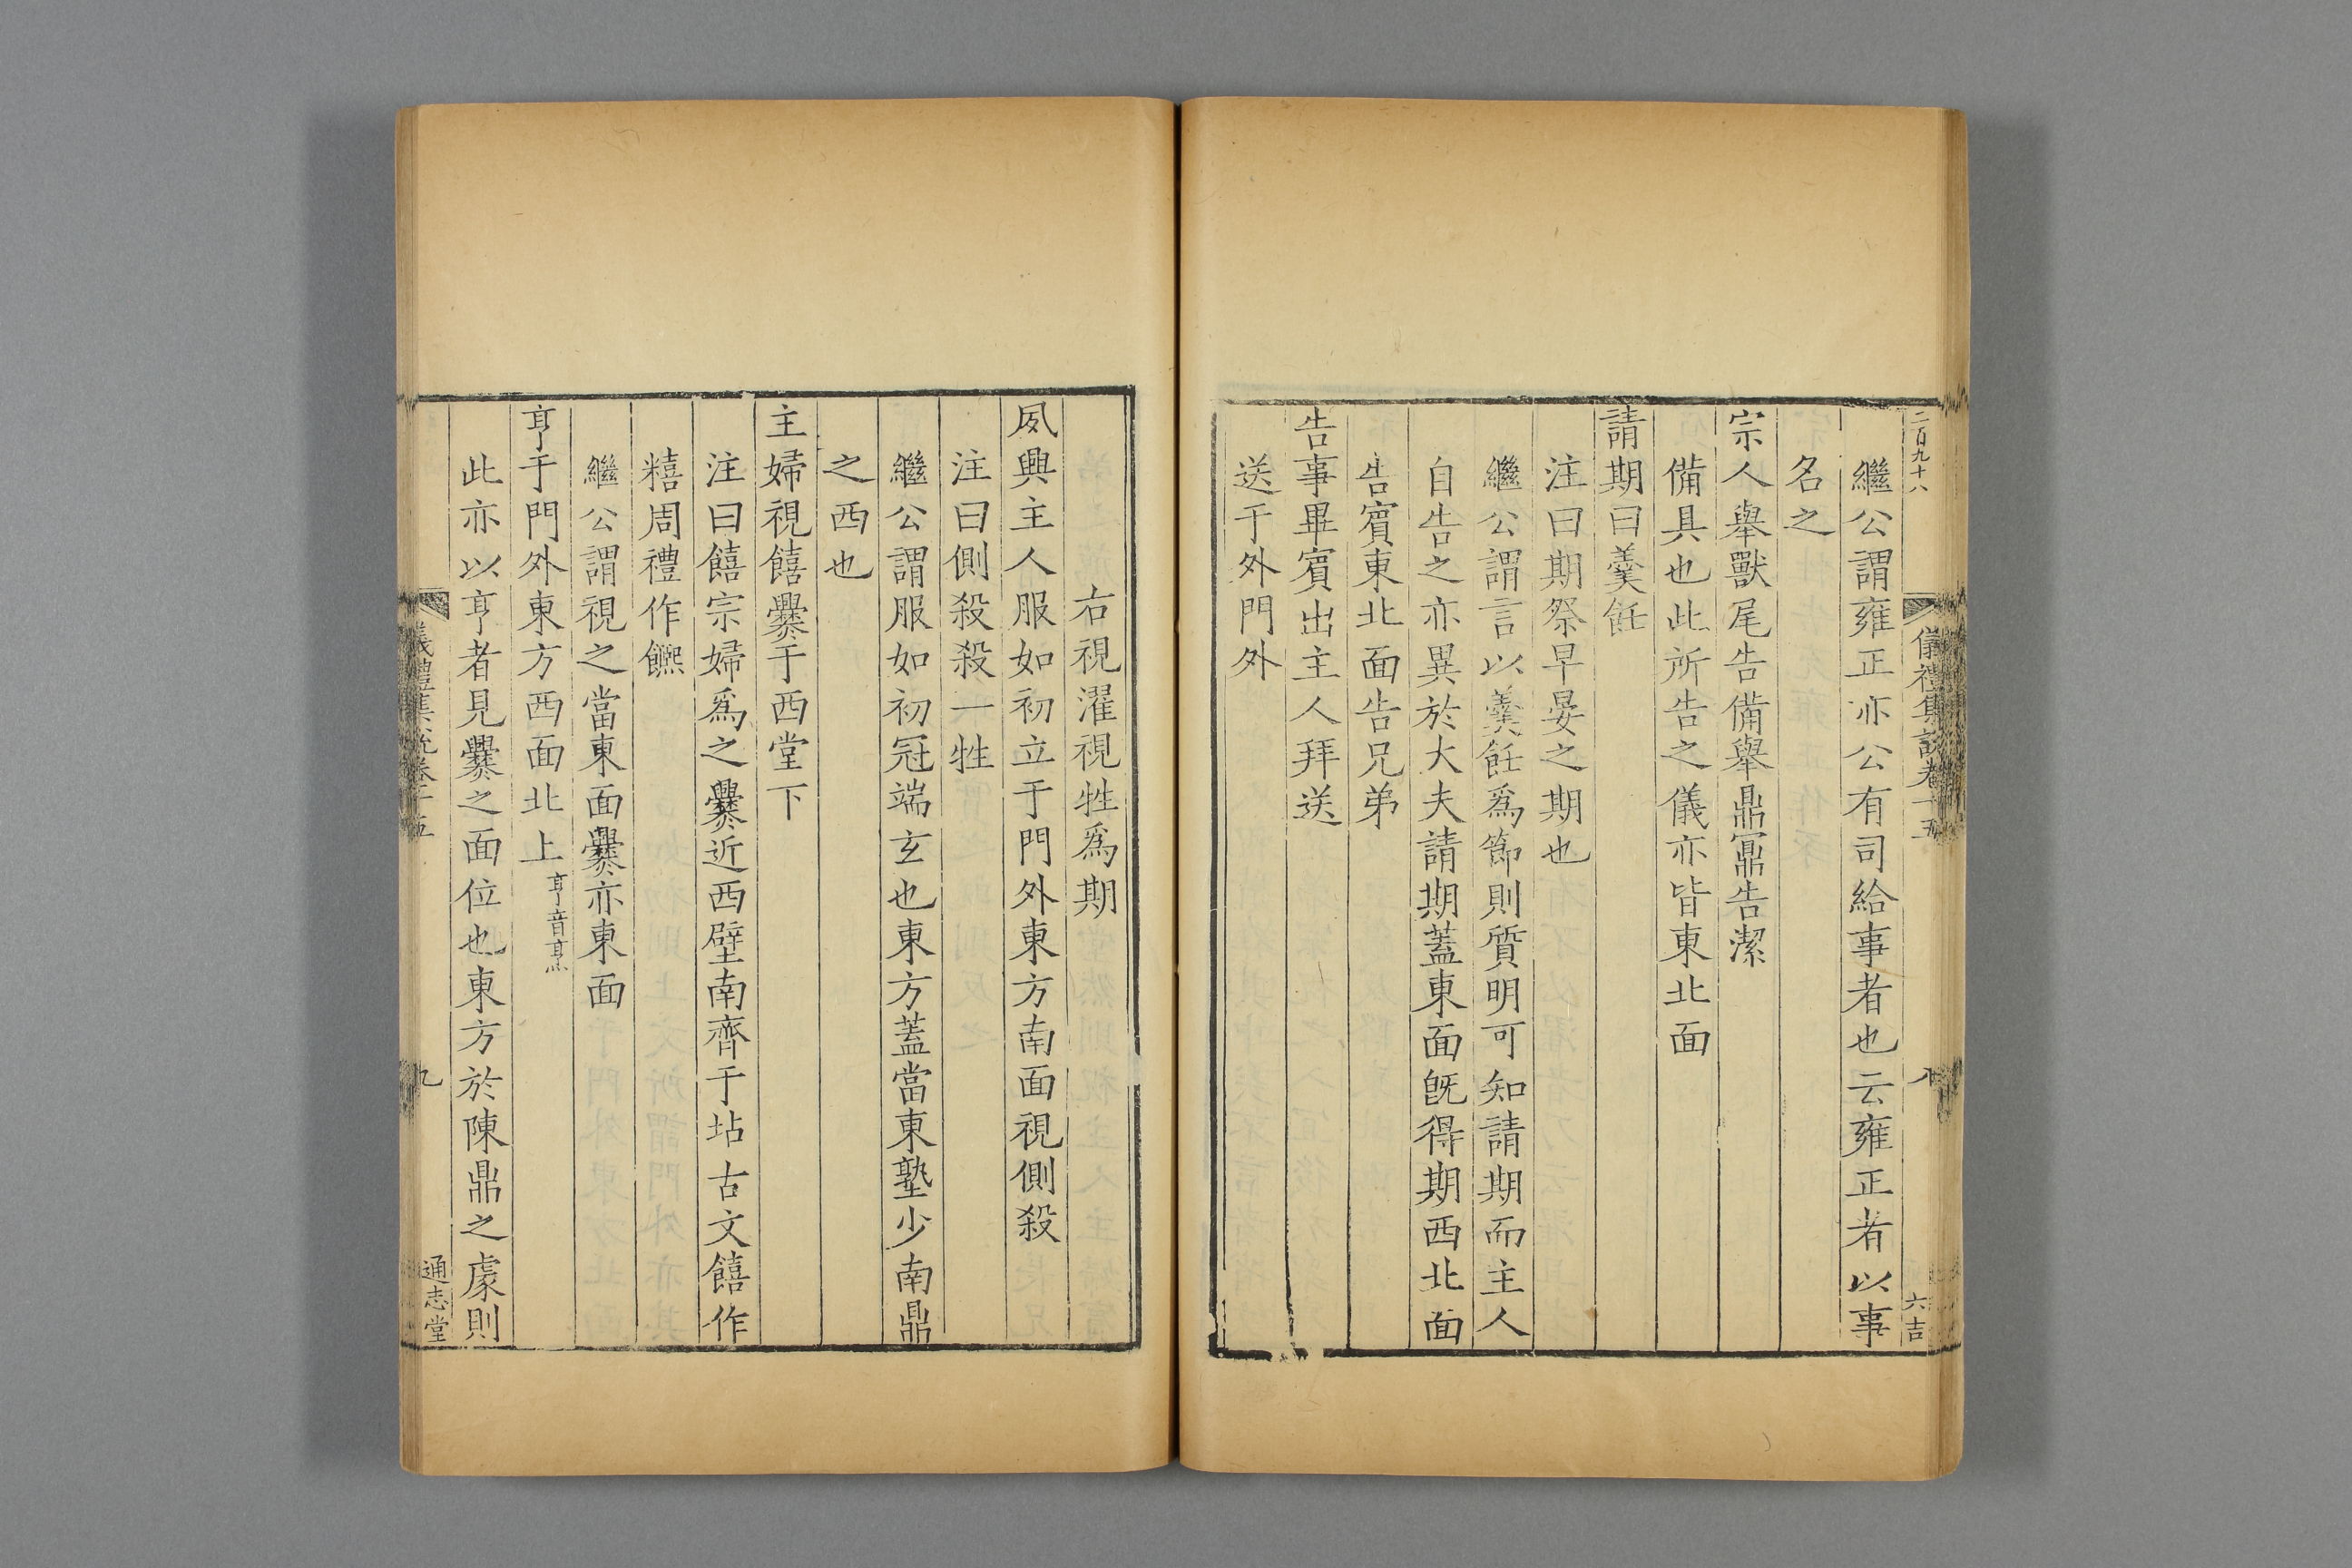 二百九十八
儀禮集說卷十五
八
六吉
繼公謂雍正亦公有司給事者也云雍正者以事
名之
宗人舉獸尾告備舉鼎鼏告潔
備具也此所告之儀亦皆東北面
請期曰羹飪
注曰期祭早晏之期也
繼公謂言以羹飪爲節則質明可知請期而主人
自告之亦異於大夫請期蓋東面旣得期西北面
告賓東北面告兄弟
告事畢賓出主人拜送
送于外門外
右視濯視牲爲期
夙興主人服如初立于門外東方南面視側殺
注曰側殺殺一牲
繼公謂服如初冠端玄也東方蓋當東塾少南鼎
之西也
主婦視饎爨于西堂下
注曰饎宗婦爲之爨近西壁南齊于坫古文饎作
糦周禮作䭒
繼公謂視之當東面爨亦東面
亨于門外東方西面北上亨音烹
此亦以亨者見爨之面位也東方於陳鼎之處則
儀禮集說卷十五
九
通志堂